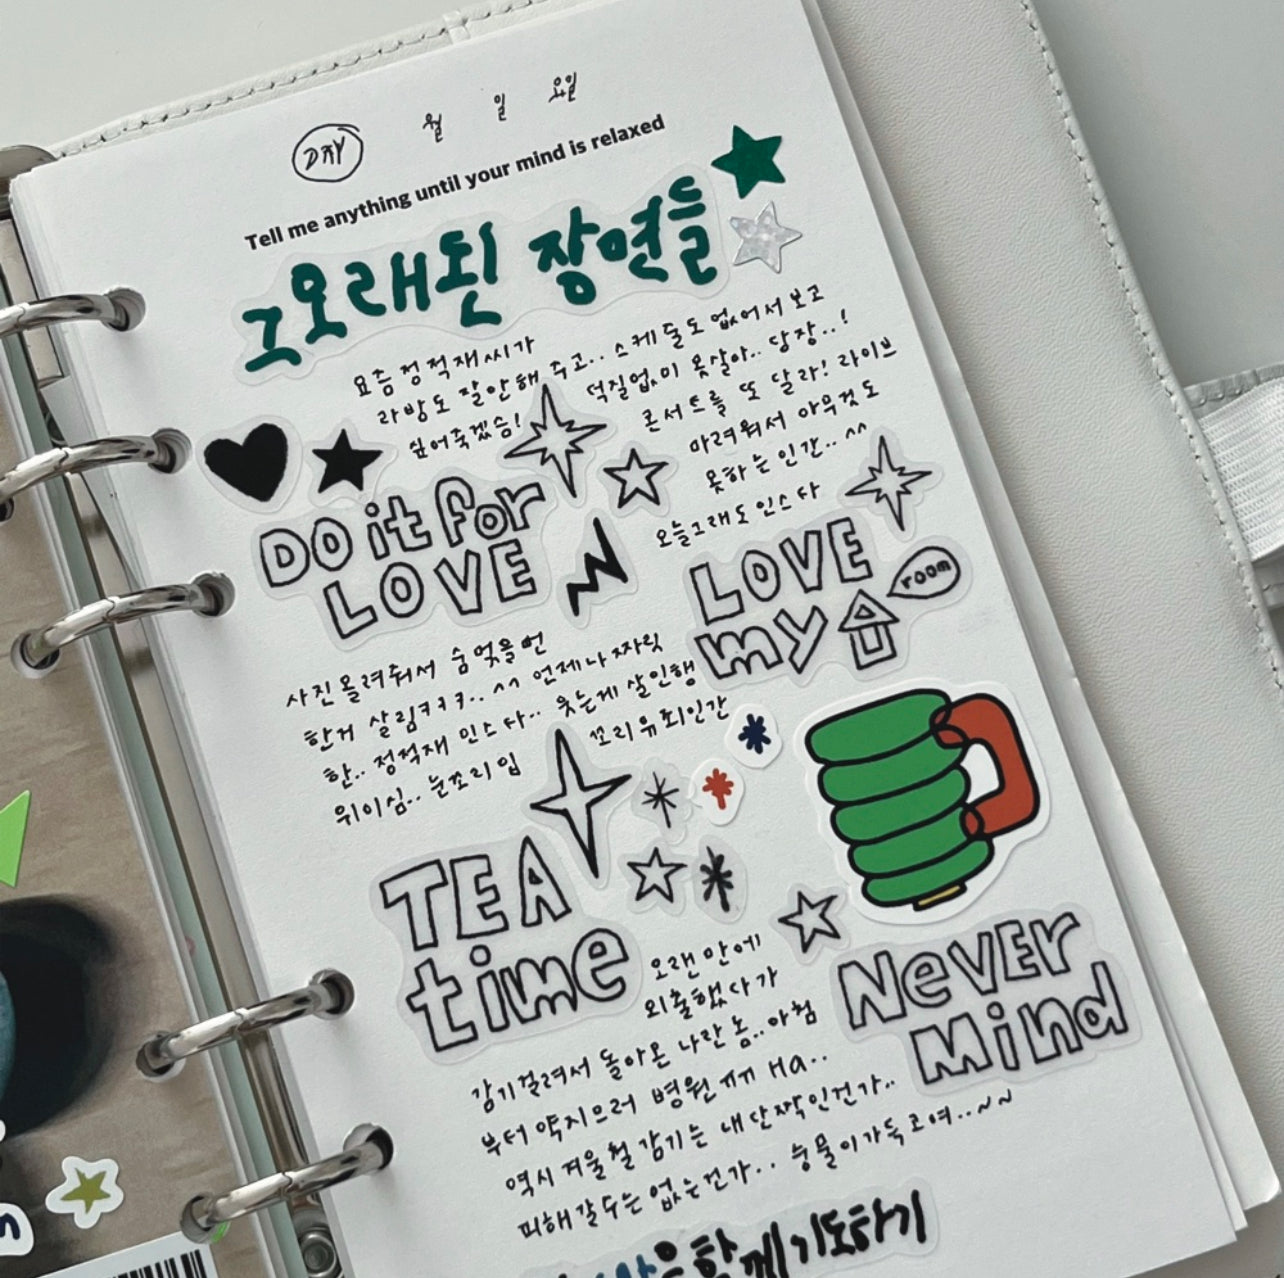 DAY 월 일 요일
Tell me anything until your mind is relaxed
그오래된 장면들
요즘 정적재씨가
라방도 잘안해 주고.. 스케줄도 없어서 보고
싶어죽겠슴!
덕질없이 못살아.. 당장..!
콘서트를 또 달라! 라이브
마려워서 아무것도
못하는 인간.. ^^
오늘그래도 인스타
DO it for
LOVE
LOVE
my
room
사진올려줘서 숨멎을번
한거 살림ㅋㅋㅋ.. ^^ 언제나 짜릿
한.. 정적재 인스타.. 웃는게 살인행
위이심.. 눈꼬리 입
꼬리 유죄인간
TEA
time
오랜만에
외출했다가
Never
Mind
감기걸려서 돌아온 나란놈.. 아침
부터 약지으러 병원 ㄲㄲ Ha..
역시 겨울철 감기는 내단짝인건가..
피해갈수는 없는건가.. 눙물이가득고여..~~
함께기도하기